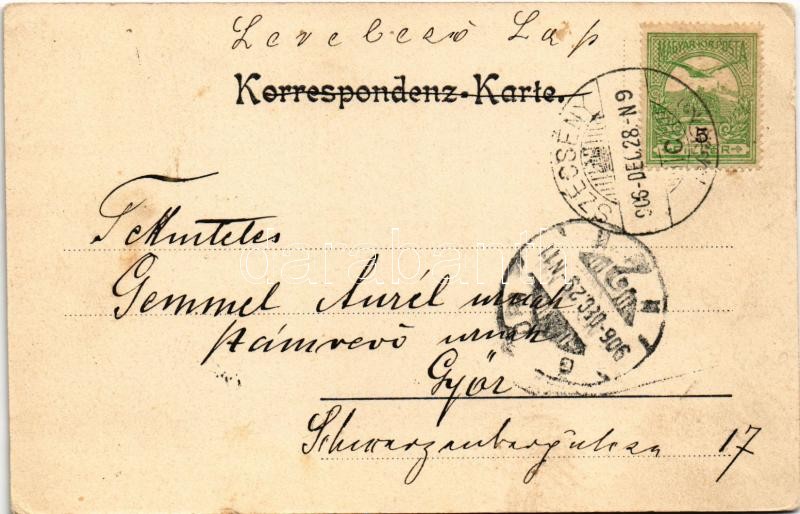 Levelező Lap
Korrespondenz-Karte.
MAGYAR KIR. POSTA
5
FILLÉR
SZÉCSÉNY
906-DEC.28.-N9
GYŐR
906-DEC.29.-N11
Tekintetes
Gemmel Aurél urnak
számvevő urnak
Győr
Schwarzenberg utcza 17
darabanth